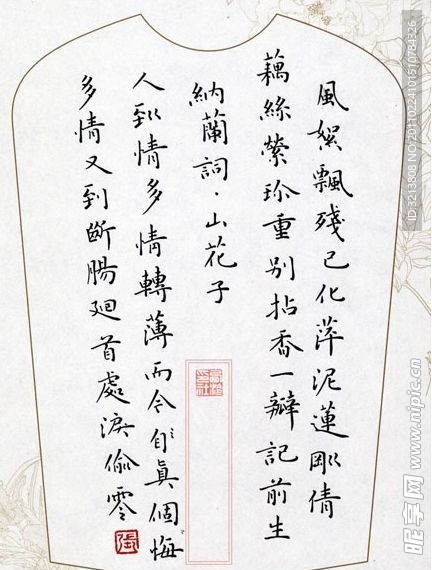 風絮飄殘已化萍泥蓮剛倩
藕絲縈珍重別拈香一瓣記前生
納蘭詞·山花子
人到情多情轉薄而今自真個悔
多情又到斷腸廻首處淚偷零
昵图网 www.nipic.cn
ID:3213808 NO:20110224101510784326